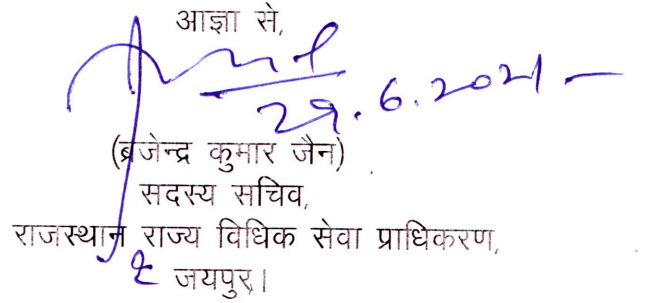 आज्ञा से,
29.6.2021
(ब्रजेन्द्र कुमार जैन)
सदस्य सचिव,
राजस्थान राज्य विधिक सेवा प्राधिकरण,
जयपुर।